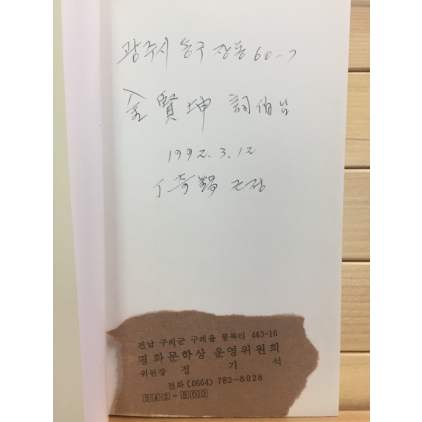 광주시 동구 장동 60-7
金賢坤 詞伯님
1992. 3. 12
丁奇錫 드림
전남 구례군 구례읍 봉북리 443-16
평화문학상 운영위원회
위원장 정 기 석
전화 (0664) 782-8028
542-800